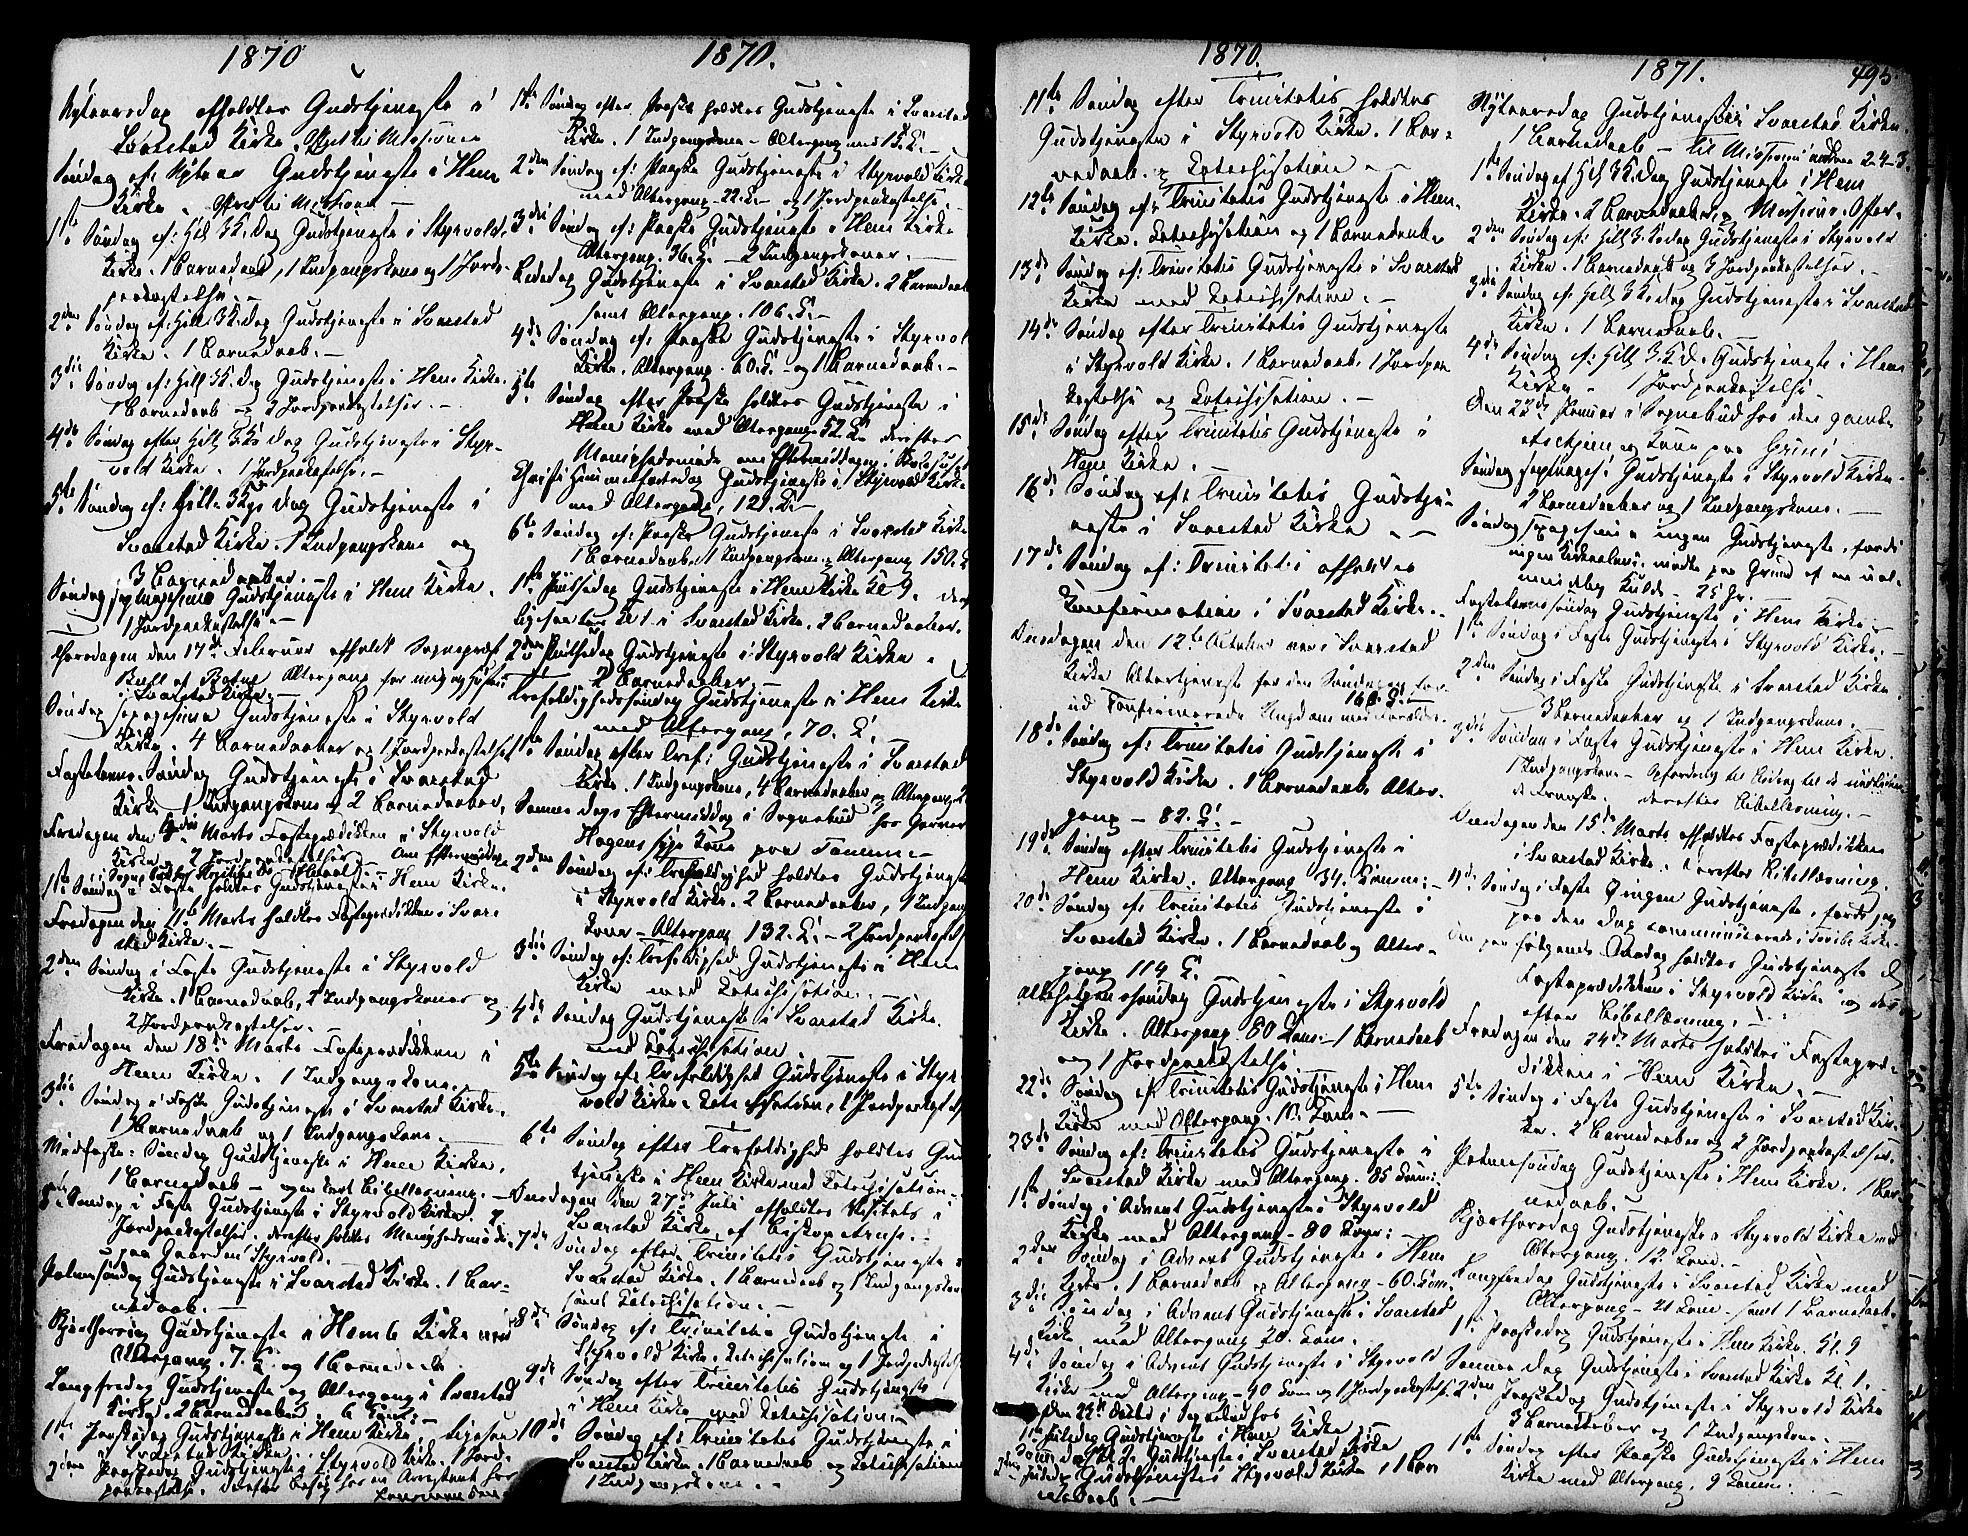 1870
Nÿtaarsdag afholdtes Gudstjeneste i
Svarstad Kirke.
Søndag ef: Nÿtaar Gudstjeneste i Hem
Kirke.
1ste Søndag ef: Hell 3K. dag Gudstjeneste i Styrvold
Kirke. 1 Barnedaab, 1 Indgangskone og 1 Jords-
paakastelse. –
2den Søndag ef: Hell 3K. dag Gudstjeneste i Svarstad
Kirke. 1 Barnedaab. –
3die Søndag ef: Hell 3K. dag Gudstjeneste i Hem Kirke.
1 Barnedaab og 3 Jordpaakastelser. –
4de Søndag efter Hell 3K's dag Gudstjeneste i Styr-
vold Kirke. 1 Jordpaakastelse. –
5te Søndag ef: Hell. 3Kgs dag Gudstjeneste i
Svarstad Kirke. 1 Indgangskone og
3 Barnedaaber. –
Søndag septuagesima Gudstjeneste i Hem Kirke.
1 Jordpaakastelse. –
Thorsdagen den 17de Februar afholdt Sogneprest
Bull af Altergang for mig og
i Svarstad Kirke. –
Søndag sexagesima Gudstjeneste i Styrvold
Kirke. 4 Barnedaaber og 1 Jordpaakastelse
Fastelavns Søndag Gudstjeneste i Svarstad
Kirke 1 Indgangskone og 2 Barnedaaber,
Fredagen den Marts Fasteprædiken i Styrvold
Kirke. 2 Jordpaakastelser. – Om Eftermiddagen
1ste Søndag i Faste holdtes Gudstjeneste i Hem Kirke.
Fredagen den 11te Marts holdtes Fasteprædiken i Svar-
stad Kirke. –
2den Søndag i Faste Gudstjeneste i Styrvold
Kirke. 1 Barnedaab, 2 Indgangskoner og
2 Jordpaakastelser. –
Fredagen den 18de Marts Fasteprædiken i
Hem Kirke. 1 Indgangskone. –
3die Søndag i Faste Gudstjeneste i Svarstad Kirke.
1 Barnedaab og 1 Indgangskone. –
Midfaste-Søndag Gudstjeneste i Hem Kirke,
1 Barnedaab – Bibellæsning. –
5te Søndag i Faste Gudstjeneste i Styrvold Kirke. 2
Jordpaakastelser. derefter holdtes Menighedsmøde
paa Gaarden Styrvold.
Palmesøndag Gudstjeneste i Svarstad Kirke. 1 Bar-
nedaab. –
Skjærthorsdag Gudstjeneste i Hem Kirke med
Altergang. 7. C. og 1 Barnedaab.
Langfredag Gudstjeneste og Altergang i Svarstad
Kirke. 2 Barnedaaber
1ste Paaskedag Gudstjeneste i Hem Kirke, ligesaa
i Svarstad Kirke.
2den Paaskedag Gudstjeneste i Styrvold Kirke. 1 Jord-
paakastelse. derefter besøg hos en Arrestant hos
Lensmanden
1870.
1ste Søndag efter Paaske holdtes Gudstjeneste i Svarstad
Kirke. 1 Indgangskone – Altergang med 15 C. –
2den Søndag ef: Paaske Gudstjeneste i Styrvold Kirke
med Altergang – 22 C. – og 1 Jordpaakastelse.
3die Søndag ef: Paaske Gudstjeneste i Hem Kirke
Altergang. 36. C. – 2 Indgangskoner. –
Bededag Gudstjeneste i Svarstad Kirke. 2 Barnedaab
samt Altergang. 106. C. –
4de Søndag ef: Paaske Gudstjeneste i Styrvold
Kirke. Altergang. 60. C. – og 1 Barnedaab. –
5te Søndag efter Paaske holdtes Gudstjeneste i
Hem Kirke med Altergang 52. C. derefter
Menighedsmøde om Eftermiddagen i
Christi Himmelfartsdag Gudstjeneste i Styrvold Kirke
med Altergang, 121. C. –
6te Søndag ef: Paaske Gudstjeneste i Svarstad Kirke
1 Barnedaab, 1 Indgangskone, Altergang 150. C
1ste Pintsedag Gudstjeneste i Hem Kirke Kl 9.
ligesaa Kl 1. i Svarstad Kirke. 2 Barnedaaber.
2den Pintsedag Gudstjeneste i Styrvold Kirke.
2 Barnedaaber. –
Trefoldighedssøndag Gudstjeneste i Hem Kirke
med Altergang, 70. C. –
1ste Søndag efter Tref: Gudstjeneste i Svarstad
Kirke. 1 Indgangskone, 4 Barnedaaber og Altergang
Samme dags Eftermiddag i Sognebud hos Garver
Hagens syge Kone paa
2den Søndag ef: Trefoldighed holdtes Gudstjeneste
i Styrvold Kirke. 2 Barnedaaber, 1 Indgangs
kone – Altergang 132. C. – 2 Jordpaakastelser
3die Søndag ef: Trefoldighed Gudstjeneste i Hem
Kirke med Catechisation. –
4de Søndag Gudstjeneste i Svarstad Kirke.
med Catechisation
5te Søndag ef: Trefoldighed Gudstjeneste i Styr-
vold Kirke. Catechisation, 1 Jordpaakastelse
6te Søndag efter Trefoldighed holdtes Gud
tjeneste i Hem Kirke med Catechisation. –
Onsdagen den 27de Juli afholdtes Visitats i
Svarstad Kirke af Biskopen. –
7de Søndag efter Trinitatis Gudstjeneste i
Svarstad Kirke. 1 Barnedaab og 1 Indgangskone
samt Catechisation. –
8de Søndag ef: Trinitatis Gudstjeneste i
Styrvold Kirke. Catechisation og 1 Jordpaakastelse
9de Søndag efter Trinitatis Gudstjeneste
i Hem Kirke med Catechisation. –
10de Søndag ef: Trinitatis Gudstjeneste i
Svarstad Kirke. 1 Barnedaab og Catechisation
1 Indgangskone. –
1870.
11te Søndag efter Trinitatis holdtes
Gudstjeneste i Styrvold Kirke. 1 Bar-
nedaab og Catechisation. –
12te Søndag ef: Trinitatis Gudstjeneste i Hem
Kirke. Catechisation og 1 Barnedaab.
13de Søndag ef: Trinitatis Gudstjeneste i Svarstad
Kirke med Catechisation. –
14de Søndag efter Trinitatis Gudstjeneste
i Styrvold Kirke. 1 Barnedaab 1 Jordpaa
kastelse og Catechisation. –
15de Søndag efter Trinitatis Gudstjeneste i
Hem Kirke.
16de Søndag ef: Trinitatis Gudstje-
neste i Svarstad Kirke –
17de Søndag ef: Trinitatis afholdtes
Konfirmation i Svarstad Kirke.
Onsdagen den 12te October var i Svarstad
Kirke Altertjeneste for den Søndagen for-
ud Confirmerede Ungdom med Forældre. 166. C.
18de Søndag ef: Trinitatis Gudstjeneste i
Styrvold Kirke. 1 Barnedaab Alter-
gang – 82. C. –
19de Søndag efter Trinitatis Gudstjeneste i
Hem Kirke. Altergang 34. Comm: –
20de Søndag ef: Trinitatis Gudstjeneste i
Svarstad Kirke. 1 Barnedaab og Alter-
gang 114 C.
Allehelgens Søndag Gudstjeneste i Styrvold
Kirke. Altergang. 80 Com: – 1 Barnedaab
og 1 Jordpaakastelse
22de Søndag ef Trinitatis Gudstjeneste i Hem
Kirke med Altergang. 10. Com. –
23de Søndag ef: Trinitatis Gudstjeneste i
Svarstad Kirke med Altergang. 85 Com:
1ste Søndag i Advent Gudstjeneste i Styrvold
Kirke med Altergang – 80 Com:
2den Søndag i Advent Gudstjeneste i Hem
Kirke. 1 Barnedaab og Altergang – 60. Com.
3die Søndag i Advent Gudstjeneste i Svarstad
Kirke med Altergang 20. Com.
4de Søndag i Advent Gudstjeneste i Styrvold
Kirke med Altergang – 40 Com og 1 Jordpaakastelse
Den 22de Decbr i Sognebud hos
1ste Juledag Gudstjeneste i Hem Kirke
Samme dag Kl. 2. Gudstjeneste i Svarstad Kirke
2den Juledag Gudstjeneste i Styrvold Kirke, 1 Bar
nedaab. –
1871. 495.
Nÿtaarsdag Gudstjeneste i Svarstad Kirke.
1 Barnedaab – Til Missionen 2-4-3.
1ste Søndag ef Hell 3K. dag Gudstjeneste i Hem
Kirke. 2 Barnedaaber, Missions-Offer.
2den Søndag ef: Hell 3K. dag Gudstjeneste i Styrvold
Kirke. 1 Barnedaab og 3 Jordpaakastelser. –
3die Søndag ef. Hell 3K. dag Gudstjeneste i Svarstad
Kirke. 1 Barnedaab. –
4de Søndag ef: Hell 3K d. Gudstjeneste i Hem
Kirke – 1 Jordpaakastelse –
Den 23de Januar i Sognebud hos den gamle
og Kone paa Grini
Søndag septuages: Gudstjeneste i Styrvold Kirke.
2 Barnedaaber og 1 Indgangskone. –
Søndag sexagesima ingen Gudstjeneste, fordi
ingen Kirkealmue mødte paa Grund af en ual-
mindelig Kulde – 25 Gr.
Fastelavnssøndag Gudstjeneste i Hem Kirke. –
1ste Søndag i Faste Gudstjeneste i Styrvold Kirke. –
2den Søndag i Faste Gudstjeneste i Svarstad Kirke
3 Barnedaaber og 1 Indgangskone.
3die Søndag i Faste Gudstjeneste i Hem Kirke.
1 Indgangskone – Opfordring til Bidrag til de
de Franske. derefter Bibellæsning. –
Onsdagen den 15de Marts afholdtes Fasteprædiken
i Svarstad Kirke. derefter Bibellæsning.
4de Søndag i Faste Ingen Gudstjeneste, fordi jeg
paa den Dag communicerede i Kirke.
Den paafølgende Onsdag holdtes Gudstjeneste
Fasteprædiken i Styrvold Kirke og der-
efter Bibellæsning. –
Fredagen den 24de Marts holdtes Fastepræ-
diken i Hem Kirke. –
5te Søndag i Faste Gudstjeneste i Svarstad Kir-
ke. 2 Barnedaaber og 2 Jordpaakastelser.
Palmesøndag Gudstjeneste i Hem Kirke. 1 Bar
nedaab. –
Skjærthorsdag Gudstjeneste i Styrvold Kirke med
Altergang. 12. Com. –
Langfredag Gudstjeneste i Svarstad Kirke med
Altergang – 21 Com – samt 1 Barnedaab.
1ste Paaskedag Gudstjeneste i Hem Kirke. Kl. 9
Samme Dag Gudstjeneste i Svarstad Kirke Kl. 1. –
2den Paaskedag Gudstjeneste i Styrvold Kirke
3 Barnedaaber og 1 Indgangskone.
1ste Søndag efter Paaske Gudstjeneste i Hem
Kirke med Altergang, 9 Comm: